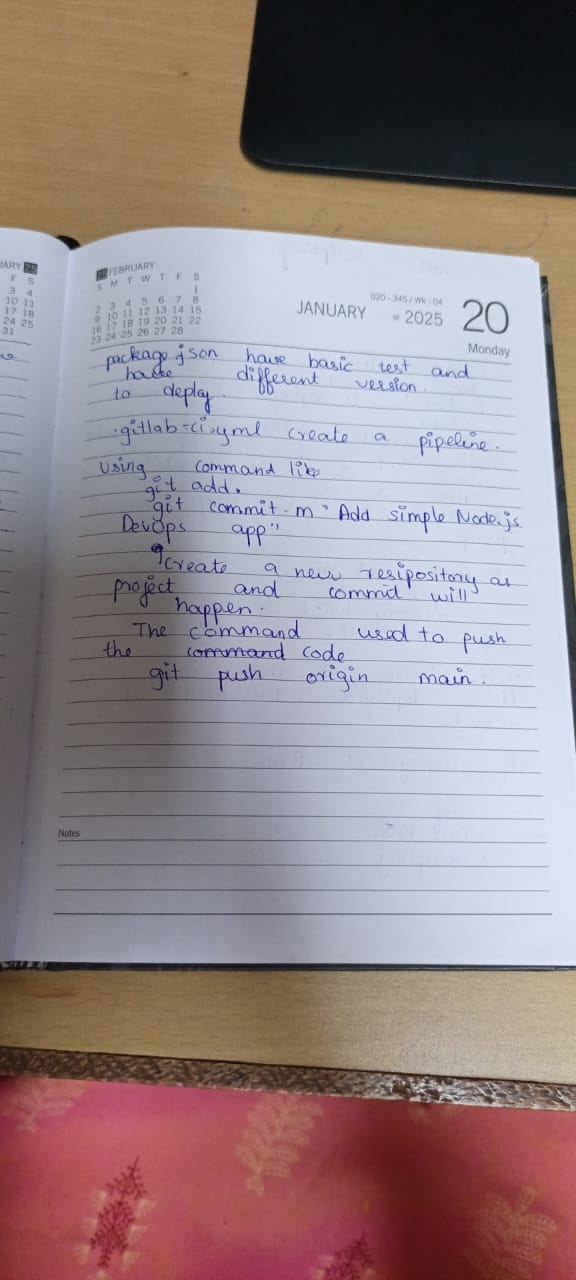 JARY 25
F S
3 4
10 11
17 18
24 25
31
25 FEBRUARY
S M T W T F S
1
2 3 4 5 6 7 8
9 10 11 12 13 14 15
16 17 18 19 20 21 22
23 24 25 26 27 28
020 - 345 / Wk - 04
JANUARY = 2025 20
Monday
package json have basic test and
have different version.
to deplay.
.gitlab-ci.yml create a pipeline.
using command like
git add.
git commit -m "Add simple Node.js
DevOps app"
create a new resipository as
project and commit will
happen.
The command used to push
the command code
git push origin main.
Notes